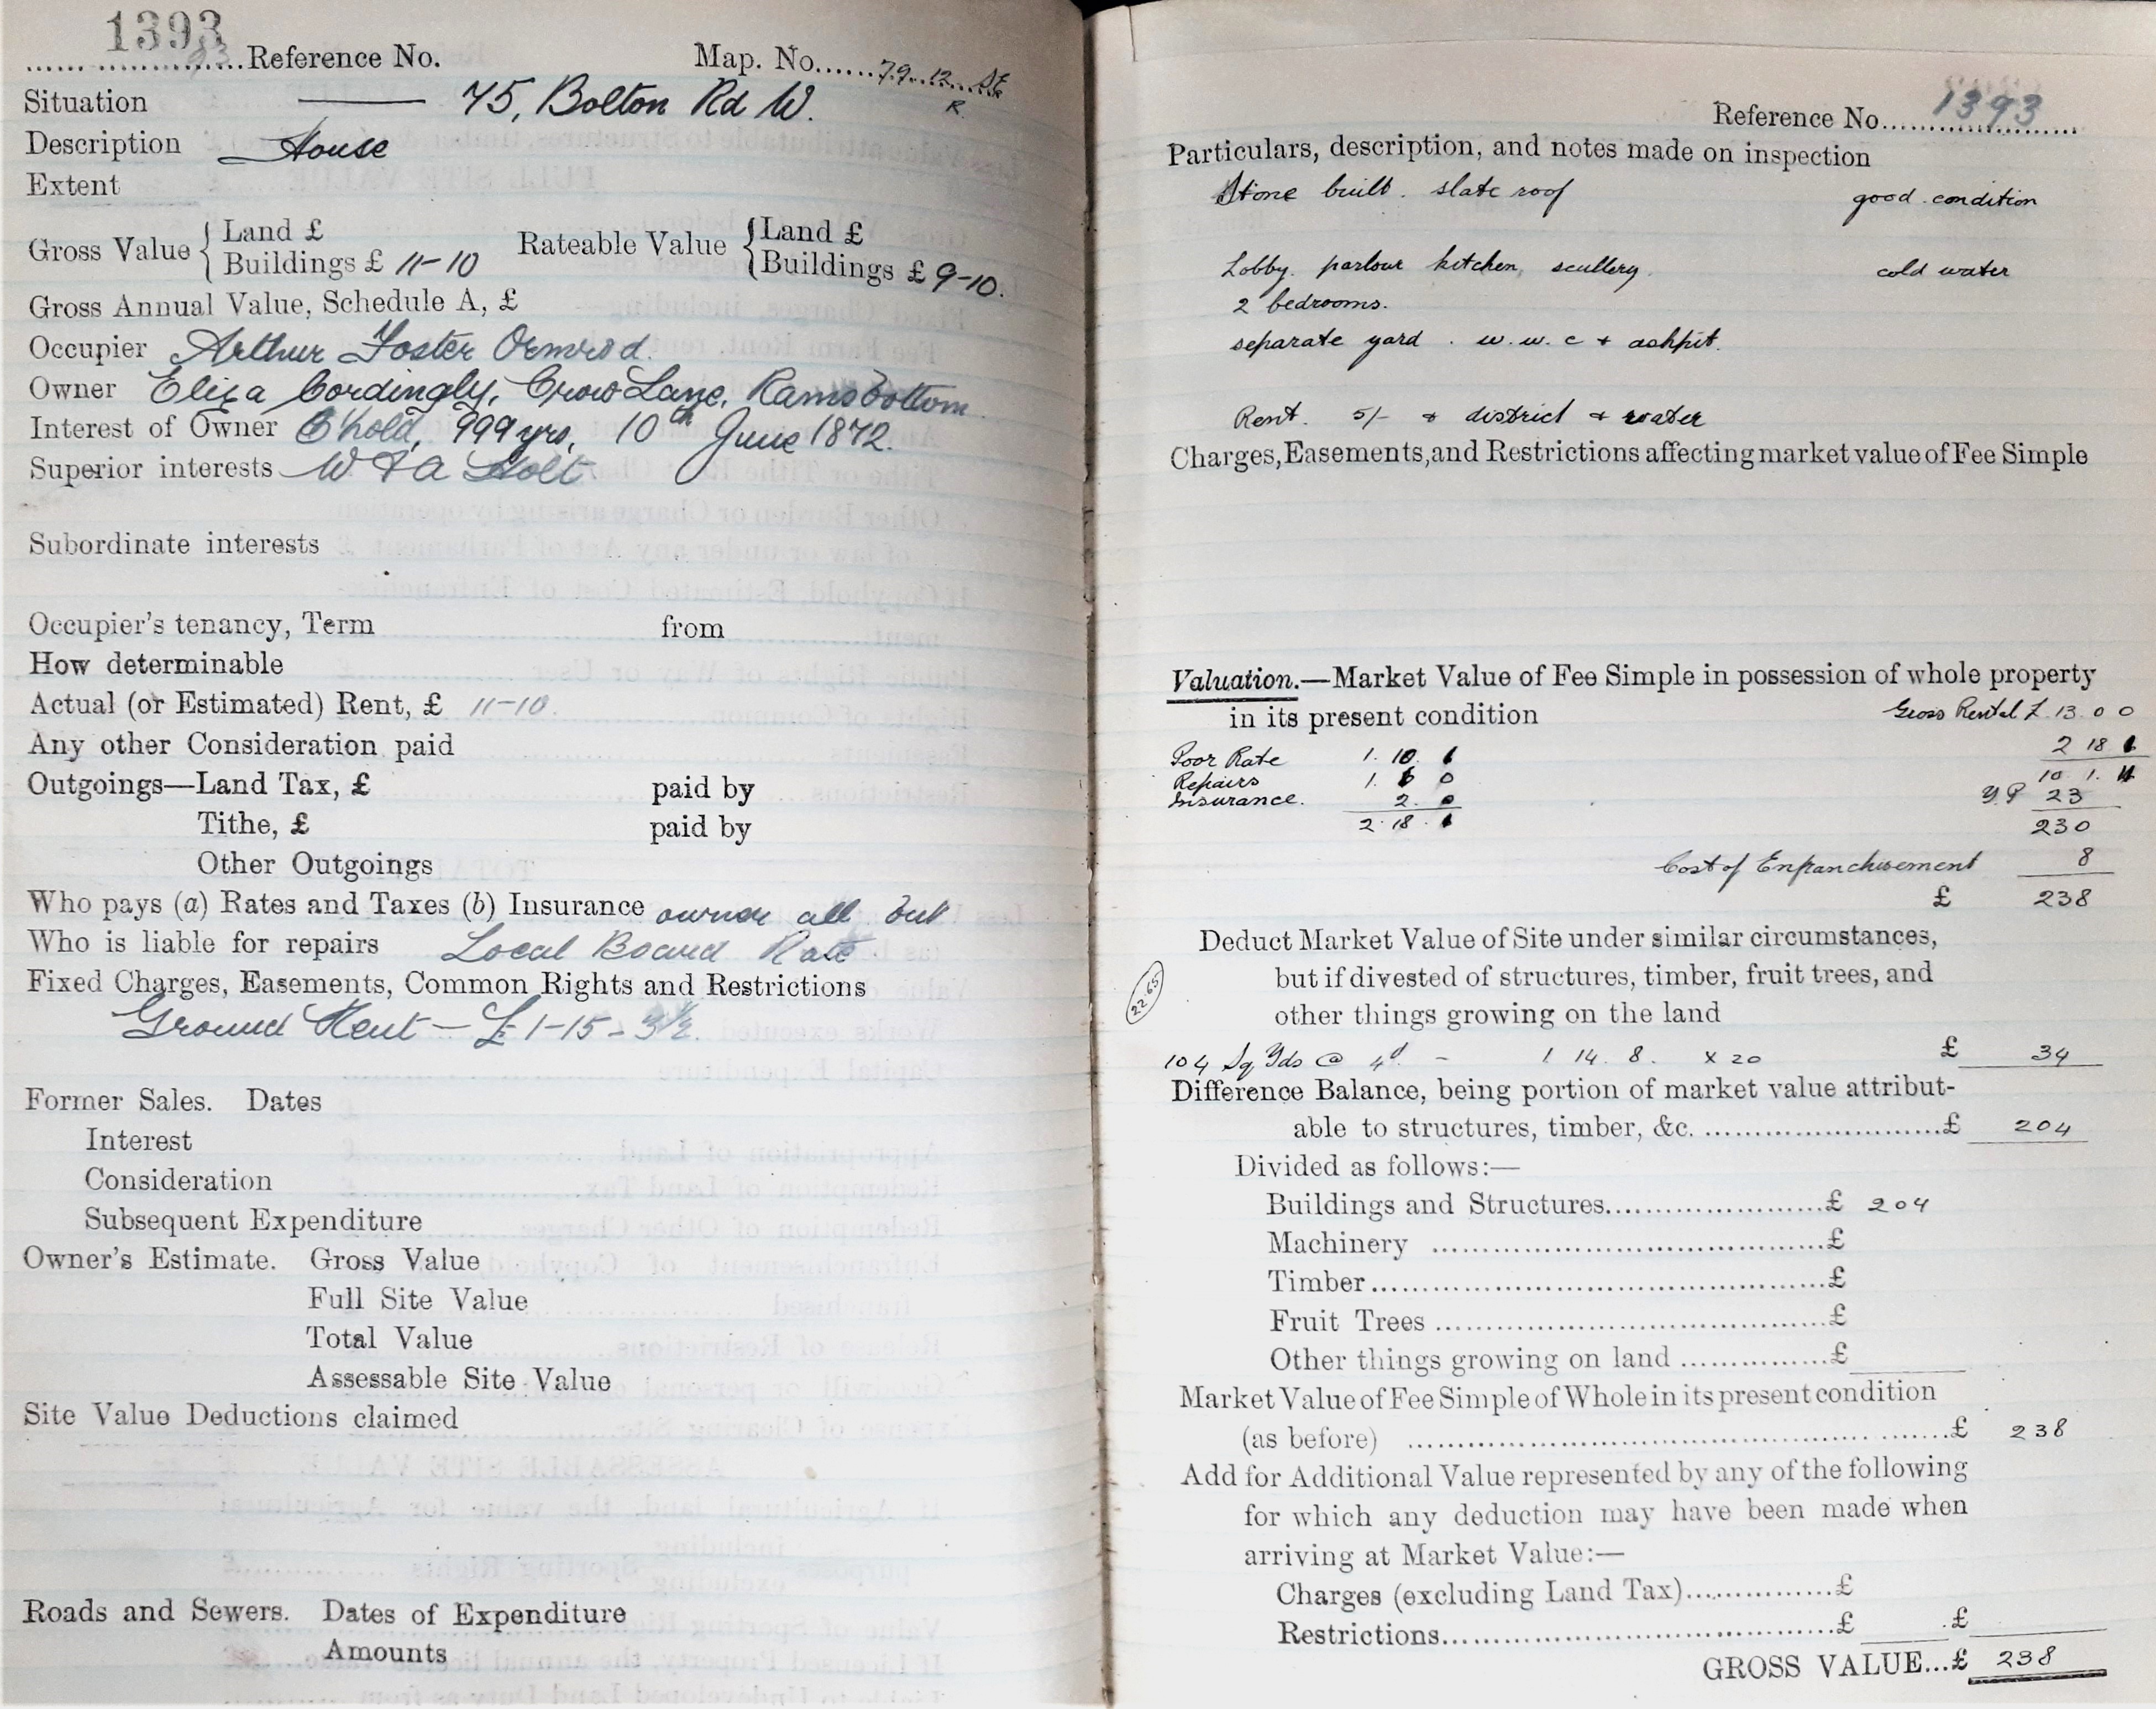 1393
Reference No. Map. No. 79.12 SE
R.
Situation — 75, Bolton Rd W.
Description House
Extent
Gross Value { Land £
Buildings £ 11-10
Rateable Value { Land £
Buildings £ 9-10.
Gross Annual Value, Schedule A, £
Occupier Arthur Foster Ormrod.
Owner Eliza Cordingly, Crow Lane, Ramsbottom
Interest of Owner hold, 999 yrs, 10th June 1872.
Superior interests W & A Holt
Subordinate interests
Occupier's tenancy, Term from
How determinable
Actual (or Estimated) Rent, £ 11-10.
Any other Consideration paid
Outgoings—Land Tax, £ paid by
Tithe, £ paid by
Other Outgoings
Who pays (a) Rates and Taxes (b) Insurance owner all but
Who is liable for repairs Local Board Rate
Fixed Charges, Easements, Common Rights and Restrictions
Ground Rent — £1-15-3½.
Former Sales. Dates
Interest
Consideration
Subsequent Expenditure
Owner's Estimate. Gross Value
Full Site Value
Total Value
Assessable Site Value
Site Value Deductions claimed
Roads and Sewers. Dates of Expenditure
Amounts
Reference No. 1393
Particulars, description, and notes made on inspection
Stone built. slate roof good condition
Lobby. parlour kitchen, scullery. cold water
2 bedrooms.
separate yard . w.w.c + ashpit.
Rent. 5/- & district & water
Charges, Easements, and Restrictions affecting market value of Fee Simple
Valuation.—Market Value of Fee Simple in possession of whole property
in its present condition Gross Rental £ 13. 0 0
Poor Rate 1. 10. 2 18
Repairs 1. 0 10. 1.
Insurance. 2. Y.P 23
2. 18. 230
Cost of Enfranchisement 8
£ 238
Deduct Market Value of Site under similar circumstances,
but if divested of structures, timber, fruit trees, and
22.65
other things growing on the land
104 Sq Yds @ 4d - 1. 14. 8. x 20 £ 34
Difference Balance, being portion of market value attribut-
able to structures, timber, &c. £ 204
Divided as follows:—
Buildings and Structures £ 204
Machinery £
Timber £
Fruit Trees £
Other things growing on land £
Market Value of Fee Simple of Whole in its present condition
(as before) £ 238
Add for Additional Value represented by any of the following
for which any deduction may have been made when
arriving at Market Value:—
Charges (excluding Land Tax) £
Restrictions £ £
GROSS VALUE...£ 238